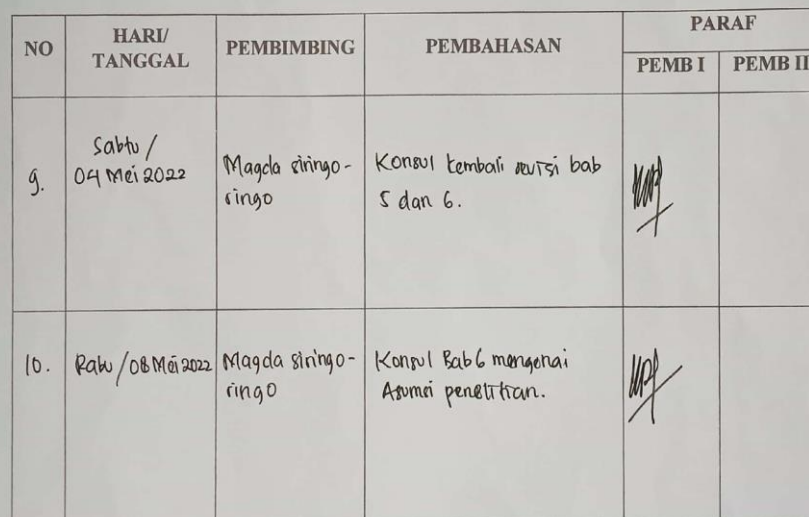 NO HARI/ TANGGAL PEMBIMBING PEMBAHASAN PARAF
PEMB I PEMB II
9. Sabtu / 04 Mei 2022 Magda siringo- ringo Konsul kembali revisi bab 5 dan 6.
10. Rabu / 08 Mei 2022 Magda siringo- ringo Konsul Bab 6 mengenai Asumsi penelitian.